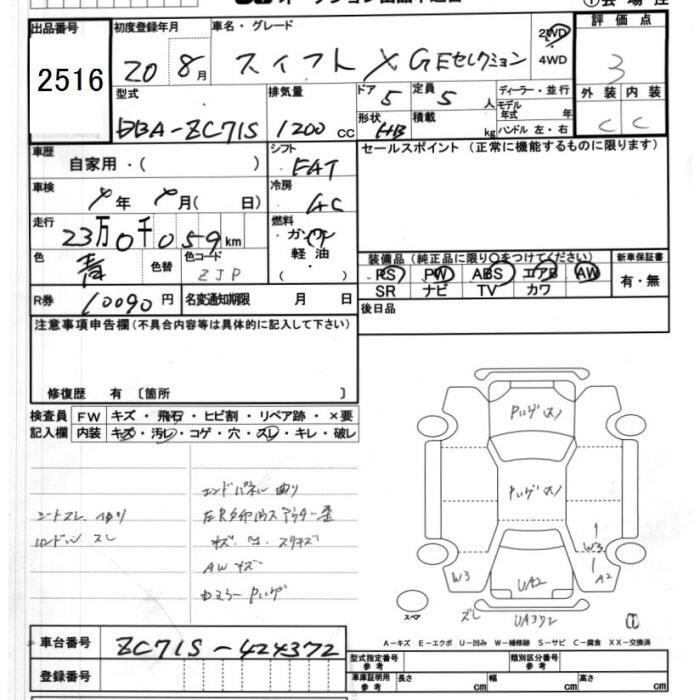 出品番号 初度登録年月 車名・グレード 評価点
2516 20 8月 スイフト X GEセレクション 2WD 4WD 3
型式 排気量 ドア 5 定員 5 人 ディーラー・並行 外装 内装
DBA-ZC71S 1200 cc 形状 HB 積載 kg モデル年式 年 C C
ハンドル 左・右
車歴 自家用・( ) シフト FAT セールスポイント(正常に機能するものに限ります)
車検 年 月( 日) 冷房 AC
走行 23万0千059km 燃料 ガソリン・軽油・( )
色 青 色替 色コード ZJP 装備品(純正品に限り○をつけてください) 新車保証書
PS PW ABS エアB AW 有・無
SR ナビ TV カワ
R券 10090円 名変通知期限 月 日 後日品
注意事項申告欄(不具合内容等は具体的に記入して下さい)
修復歴 有 〔箇所 〕
検査員 FW キズ・飛石・ヒビ割・リペア跡・×要
記入欄 内装 キズ・汚レ・コゲ・穴・スレ・キレ・破レ
エンドパネル 曲り
シートスレ
スレ
AWキズ
W3 UA2 W3 A2
スペア ズレ
A-キズ E-エクボ U-凹み W-補修跡 S-サビ C-腐食 XX-交換済
車台番号 ZC71S-424372
登録番号
型式指定番号 参考 類別区分番号 参考
車庫証明用 参考 長さ cm 幅 cm 高さ cm